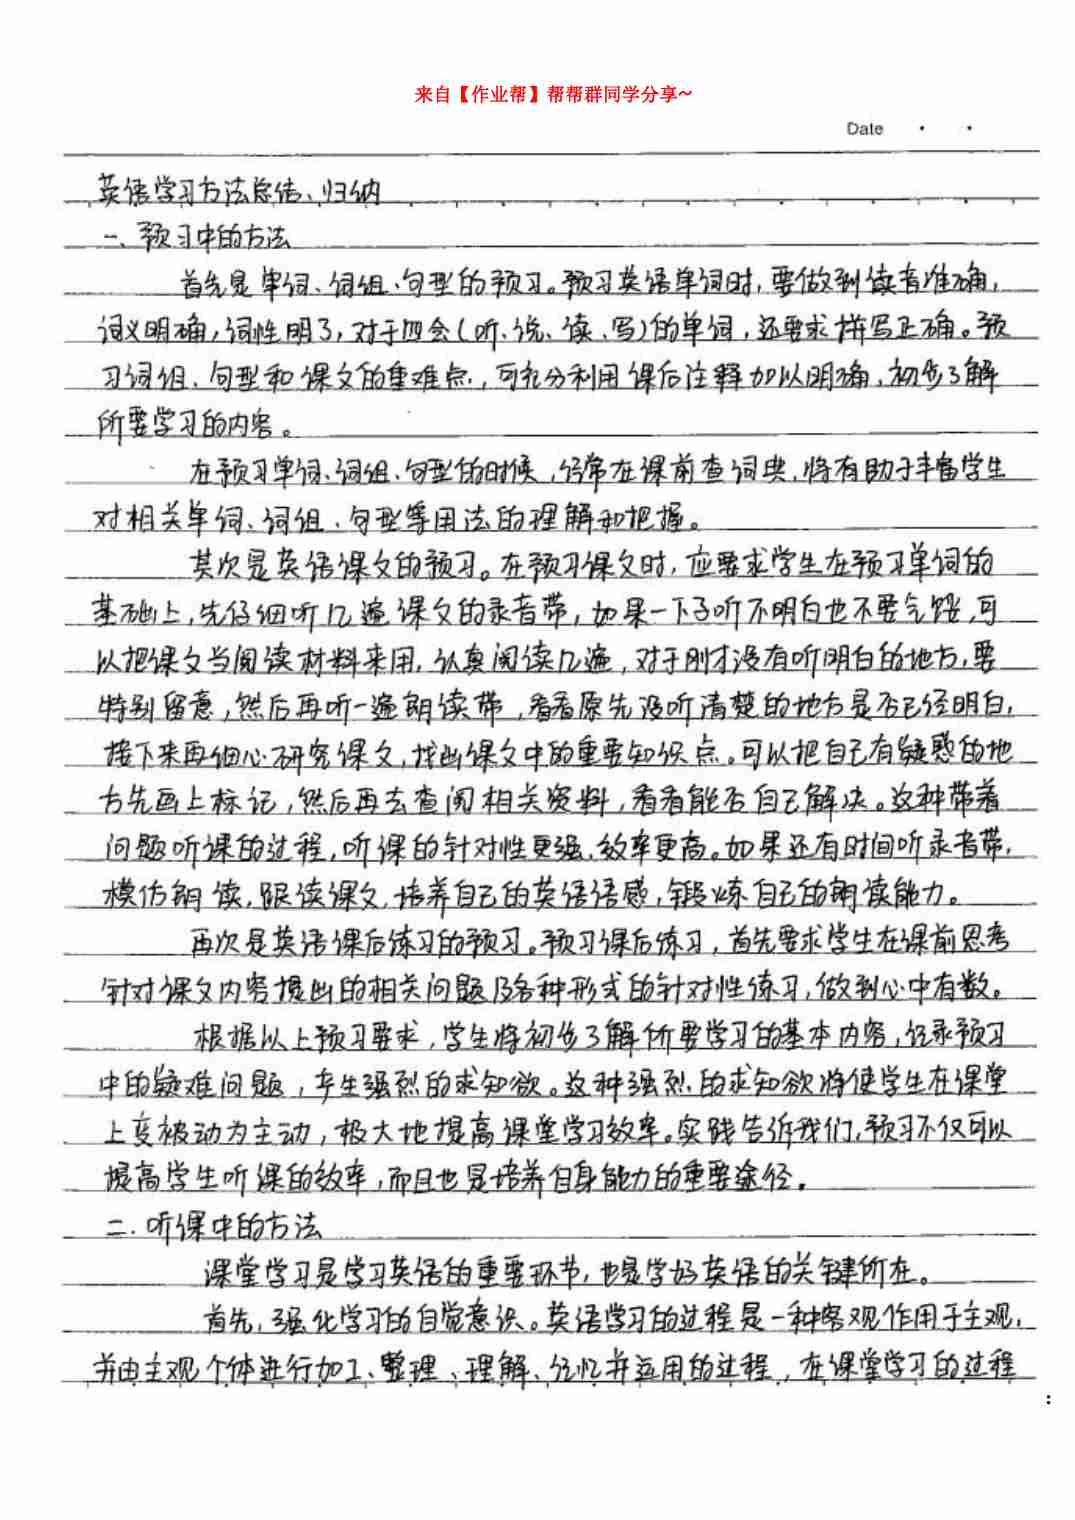 来自【作业帮】帮帮群同学分享~
Date
英语学习方法总结、归纳
一、预习中的方法
首先是单词、词组、句型的预习。预习英语单词时,要做到读音准确,
词义明确,词性明了,对于四会(听、说、读、写)的单词,还要求拼写正确。预
习词组、句型和课文的重难点,可充分利用课后注释加以明确,初步了解
所要学习的内容。
在预习单词、词组、句型的时候,经常在课前查词典,将有助于丰富学生
对相关单词、词组、句型等用法的理解和把握。
其次是英语课文的预习。在预习课文时,应要求学生在预习单词的
基础上,先仔细听几遍课文的录音带,如果一下子听不明白也不要气馁,可
以把课文当阅读材料来用,认真阅读几遍,对于刚才没有听明白的地方,要
特别留意,然后再听一遍朗读带,看看原先没听清楚的地方是否已经明白,
接下来再细心研究课文,找出课文中的重要知识点。可以把自己有疑惑的地
方先画上标记,然后再去查阅相关资料,看看能否自己解决。这种带着
问题听课的过程,听课的针对性更强,效率更高。如果还有时间听录音带,
模仿朗读,跟读课文,培养自己的英语语感,锻炼自己的朗读能力。
再次是英语课后练习的预习。预习课后练习,首先要求学生在课前思考
针对课文内容提出的相关问题及各种形式的针对性练习,做到心中有数。
根据以上预习要求,学生将初步了解所要学习的基本内容,记录预习
中的疑难问题,产生强烈的求知欲。这种强烈的求知欲将使学生在课堂
上变被动为主动,极大地提高课堂学习效率。实践告诉我们,预习不仅可以
提高学生听课的效率,而且也是培养自身能力的重要途径。
二、听课中的方法
课堂学习是学习英语的重要环节,也是学好英语的关键所在。
首先,强化学习的自觉意识。英语学习的过程是一种客观作用于主观,
并由主观个体进行加工、整理、理解、记忆并运用的过程,在课堂学习的过程
: